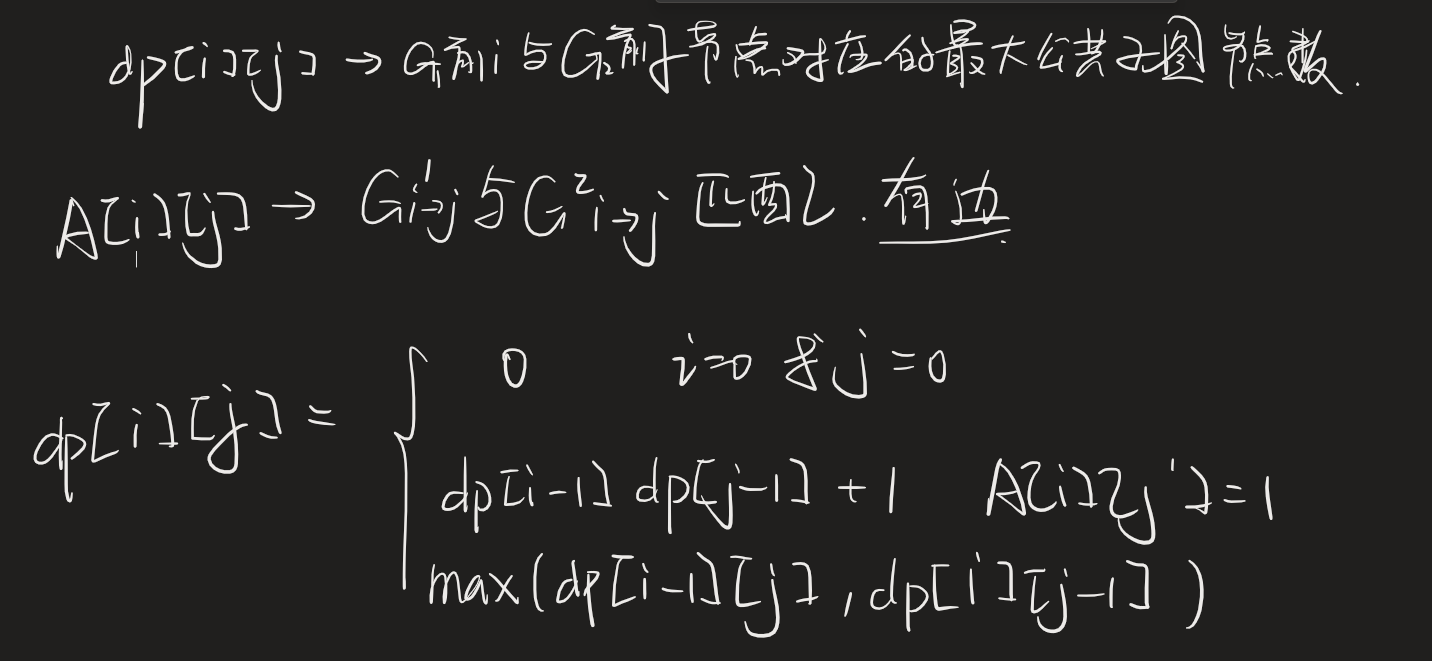 dp[i][j] → G₁前i与G₂前j节点对在的最大公共子图节点数.
A[i][j] → G¹i→j与G²i→j匹配.有边
0 i=0 或 j=0
dp[i][j] =
dp[i-1] dp[j-1] + 1 A[i][j]=1
max(dp[i-1][j],dp[i][j-1])